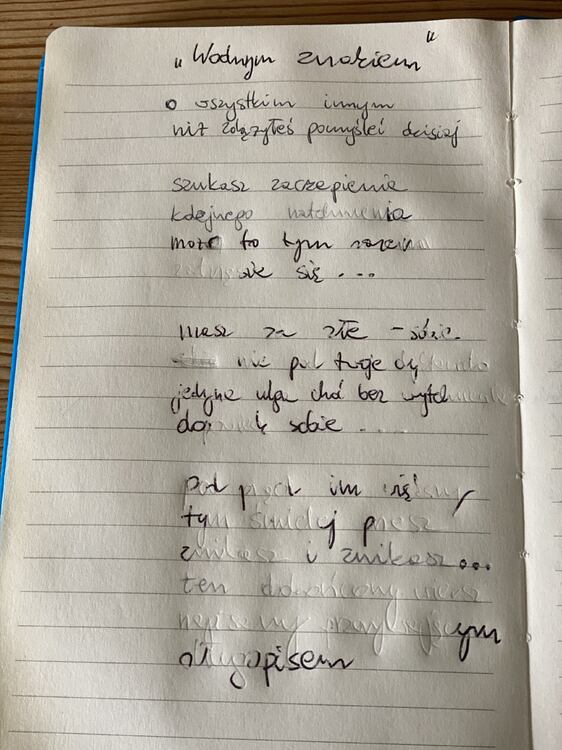 "Wodnym znakiem"
o wszystkim innym
niż zdążyłeś pomyśleć dzisiaj
szukasz zaczepienia
kolejnego natchnienia
może to tym razem
się ...
masz za złe
nie pod twoje
jedyna ulga choć bez wytchnienia
sobie ....
pod prąd im
tym śmielej piszesz
znikasz i znikasz...
ten dokończony wiersz
napisany
długopisem